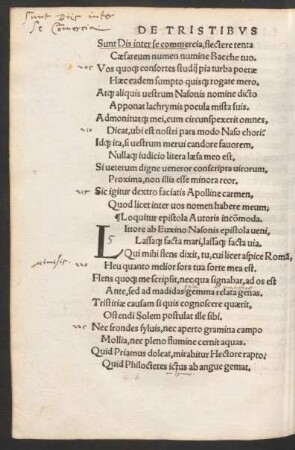 Sunt Dis inte
se Comercia
DE TRISTIBVS
Sunt Dis inter se commercia, flectere tenta
Cæsareum numen numine Bacche tuo.
Vos quoqꝫ consortes studij pia turba poetæ
Hæc eadem sumpto quisqꝫ rogate mero.
Atqꝫ aliquis uestrum Nasonis nomine dicto
Apponat lachrymis pocula mista suis.
Admonitusqꝫ mei, cum circunspexerit omnes,
Dicat, ubi est nostri pars modo Naso chori?
Idqꝫ ita, si uestrum merui candore fauorem,
Nullaqꝫ iudicio litera læsa meo est,
Si ueterum digne ueneror conscripta uirorum,
Proxima, non illis esse minora reor.
Sic igitur dextro faciatis Apolline carmen,
Quod licet inter uos nomen habere meum;
¶Loquitur epistola Autoris incõmoda.
Littore ab Euxino Nasonis epistola ueni,
Lassaqꝫ facta mari, lassaqꝫ facta uia.
Qui mihi flens dixit, tu, cui licet aspice Romã,
Heu quanto melior sors tua sorte mea est.
Flens quoqꝫ me scripsit, nec qua signabar, ad os est
Ante, sed ad madidas gemma relata genas.
Tristitiæ causam si quis cognoscere quærit,
Ostendi Solem postulat ille sibi.
Nec frondes syluis, nec aperto gramina campo
Mollia, nec pleno flumine cernit aquas.
Quid Priamus doleat, mirabitur Hectore rapto;
Quid Philoctetes ictus ab angue gemat.